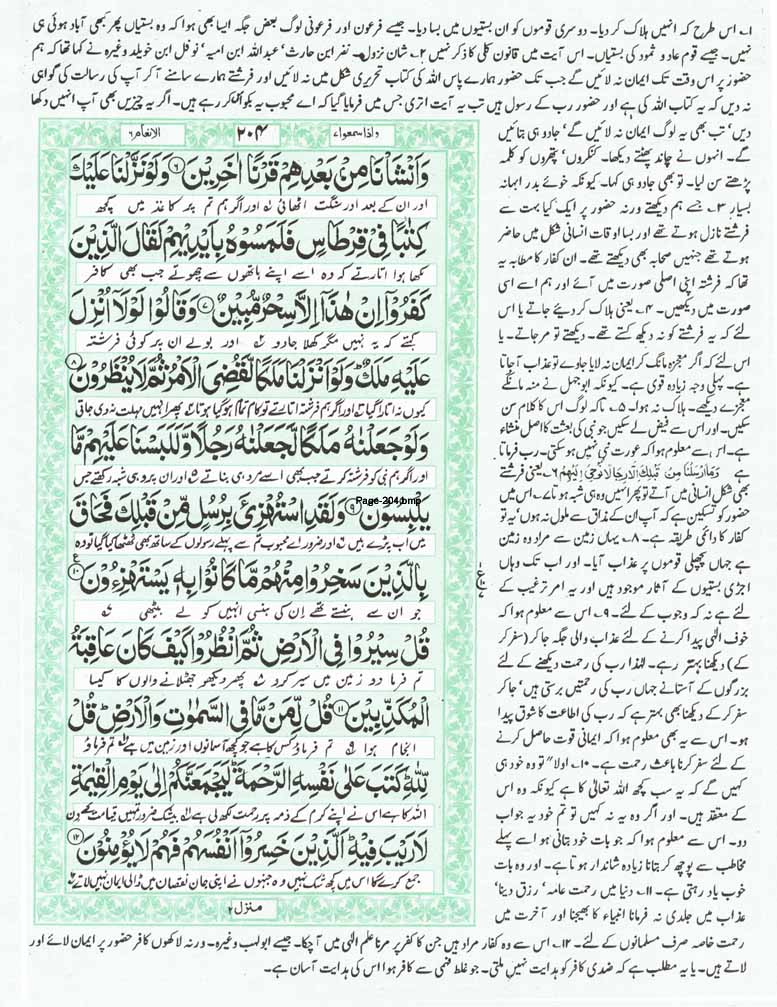 ۱۔ اس طرح کہ انہیں ہلاک کر دیا۔ دوسری قوموں کو ان بستیوں میں بسا دیا۔ جیسے فرعون اور فرعونی لوگ بعض جگہ ایسا بھی ہوا کہ وہ بستیاں پھر کبھی آباد ہوئی ہی
نہیں۔ جیسے قوم عاد و ثمود کی بستیاں۔ اس آیت میں قانون کلی کا ذکر نہیں ۲۔ شان نزول۔ نضر ابن حارث، عبداللہ ابن امیہ، نوفل ابن خویلد وغیرہ نے کہا تھا کہ ہم
حضور پر اس وقت تک ایمان نہ لائیں گے جب تک حضور ہمارے پاس اللہ کی کتاب تحریری شکل میں نہ لائیں اور فرشتے ہمارے سامنے آ کر آپ کی رسالت کی گواہی
نہ دیں کہ یہ کتاب اللہ کی ہے اور حضور رب کے رسول ہیں تب یہ آیت اتری جس میں فرمایا گیا کہ اے محبوب یہ بکواس کر رہے ہیں۔ اگر یہ چیزیں بھی آپ انہیں دکھا
دیں، تب بھی یہ لوگ ایمان نہ لائیں گے، جادو ہی بتائیں
گے۔ انہوں نے چاند پھٹتے دیکھا۔ کنکروں، پتھروں کو کلمہ
پڑھتے سن لیا۔ تو بھی جادو ہی کہا۔ کیونکہ خوئے بد را بہانہ
بسیار ۳۔ جسے ہم دیکھتے ورنہ حضور پر ایک کیا بہت سے
فرشتے نازل ہوتے تھے اور بسا اوقات انسانی شکل میں حاضر
ہوتے تھے جنہیں صحابہ بھی دیکھتے تھے۔ ان کفار کا مطالبہ یہ
تھا کہ فرشتہ اپنی اصلی صورت میں آئے اور ہم اسے اسی
صورت میں دیکھیں۔ ۴۔ یعنی ہلاک کر دیئے جاتے یا اس
لئے کہ یہ فرشتے کو نہ دیکھ سکتے تھے۔ دیکھتے تو مر جاتے۔ یا
اس لئے کہ اگر معجزہ مانگ کر ایمان نہ لایا جاوے تو عذاب آ جاتا
ہے۔ پہلی وجہ زیادہ قوی ہے۔ کیونکہ ابوجہل نے منہ مانگے
معجزے دیکھے۔ ہلاک نہ ہوا۔ ۵۔ تاکہ لوگ اس کا کلام سن
سکیں۔ اور اس سے فیض لے سکیں جو نبی کی بعثت کا اصل منشاء
ہے۔ اس سے معلوم ہوا کہ عورت نبی نہیں ہو سکتی۔ رب فرماتا
ہے وَمَا اَرْسَلْنَا مِنْ قَبْلِكَ اِلَّا رِجَالًا نُّوْحِيْ اِلَيْهِمْ ۶۔ یعنی فرشتے
بھی شکل انسانی میں آتے تو پھر انہیں وہ ہی شبہ ہوتا ۷۔ اس میں
حضور کو تسکین ہے کہ آپ ان کے مذاق سے ملول نہ ہوں، یہ تو
کفار کا دائمی طریقہ ہے۔ ۸۔ یہاں زمین سے مراد وہ زمین
ہے جہاں پچھلی قوموں پر عذاب آیا۔ اور اب تک وہاں
اجڑی بستیوں کے آثار موجود ہیں اور یہ امر ترغیب کے
لئے ہے نہ کہ وجوب کے لئے۔ ۹۔ اس سے معلوم ہوا کہ
خوف الٰہی پیدا کرنے کے لئے عذاب والی جگہ جا کر (سفر کر
کے) دیکھنا بہتر ہے۔ لہٰذا رب کی رحمت دیکھنے کے لئے
بزرگوں کے آستانے جہاں رب کی رحمتیں برستی ہیں، جا کر
سفر کر کے دیکھنا بھی بہتر ہے کہ رب کی اطاعت کا شوق پیدا
ہو۔ اس سے یہ بھی معلوم ہوا کہ ایمانی قوت حاصل کرنے
کے لئے سفر کرنا باعث رحمت ہے۔ ۱۰۔ اولاً تو وہ خود ہی
کہیں گے کہ یہ سب کچھ اللہ تعالیٰ کا ہے کیونکہ وہ اس
کے معتقد ہیں۔ اور اگر وہ یہ نہ کہیں تو تم خود یہ جواب
دو۔ اس سے معلوم ہوا کہ جو بات خود بتانی ہو اسے پہلے
مخاطب سے پوچھ کر بتانا زیادہ شاندار ہوتا ہے۔ اور وہ بات
خوب یاد رہتی ہے۔ ۱۱۔ دنیا میں رحمت عامہ، رزق دینا،
عذاب میں جلدی نہ فرمانا انبیاء کا بھیجنا اور آخرت میں
رحمت خاصہ صرف مسلمانوں کے لئے۔ ۱۲۔ اس سے وہ کفار مراد ہیں جن کا کفر پر مرنا علم الٰہی میں آ چکا۔ جیسے ابولہب وغیرہ۔ ورنہ لاکھوں کافر حضور پر ایمان لائے اور
لاتے ہیں۔ یا یہ مطلب ہے کہ ضدی کافر کو ہدایت نہیں ملتی۔ جو غلط فہمی سے کافر ہوا اس کی ہدایت آسان ہے۔
واذا سمعوا ۷
۲۰۴
الانعام ۶
وَاَنْشَاْنَا مِنْۢ بَعْدِهِمْ قَرْنًا اٰخَرِيْنَ ۶ وَلَوْ نَزَّلْنَا عَلَيْكَ
اور ان کے بعد اور سنگت اٹھائی اور اگر ہم تم پر کاغذ میں کچھ
كِتٰبًا فِيْ قِرْطَاسٍ فَلَمَسُوْهُ بِاَيْدِيْهِمْ لَقَالَ الَّذِيْنَ
لکھا ہوا اتارتے کہ وہ اسے اپنے ہاتھوں سے چھوتے جب بھی کافر
كَفَرُوْۤا اِنْ هٰذَاۤ اِلَّا سِحْرٌ مُّبِيْنٌ ۷ وَقَالُوْا لَوْلَاۤ اُنْزِلَ
کہتے کہ یہ نہیں مگر کھلا جادو اور بولے ان پر کوئی فرشتہ
عَلَيْهِ مَلَكٌ ؕ وَلَوْ اَنْزَلْنَا مَلَكًا لَّقُضِيَ الْاَمْرُ ثُمَّ لَا يُنْظَرُوْنَ ۸
کیوں نہ اتارا گیا اور اگر ہم فرشتہ اتارتے تو کام تمام ہو گیا ہوتا پھر انہیں مہلت نہ دی جاتی
وَلَوْ جَعَلْنٰهُ مَلَكًا لَّجَعَلْنٰهُ رَجُلًا وَّلَلَبَسْنَا عَلَيْهِمْ مَّا
اور اگر ہم نبی کو فرشتہ کرتے جب بھی اسے مرد ہی بناتے اور ان پر وہی شبہ رکھتے جس
يَلْبِسُوْنَ ۹ وَلَقَدِ اسْتُهْزِئَ بِرُسُلٍ مِّنْ قَبْلِكَ فَحَاقَ
Page-204.bmp
میں اب پڑے ہیں اور ضرور اے محبوب تم سے پہلے رسولوں کے ساتھ بھی ٹھٹھا کیا گیا تو وہ
بِالَّذِيْنَ سَخِرُوْا مِنْهُمْ مَّا كَانُوْا بِهٖ يَسْتَهْزِءُوْنَ ۱۰
جو ان سے ہنستے تھے ان کی ہنسی انہیں کو لے بیٹھی
قُلْ سِيْرُوْا فِي الْاَرْضِ ثُمَّ انْظُرُوْا كَيْفَ كَانَ عَاقِبَةُ
تم فرما دو زمین میں سیر کرو پھر دیکھو جھٹلانے والوں کا کیسا
الْمُكَذِّبِيْنَ ۱۱ قُلْ لِّمَنْ مَّا فِي السَّمٰوٰتِ وَالْاَرْضِ ؕ قُلْ
انجام ہوا تم فرماؤ کس کا ہے جو کچھ آسمانوں اور زمین میں ہے تم فرماؤ
لِّلّٰهِ ؕ كَتَبَ عَلٰى نَفْسِهِ الرَّحْمَةَ ؕ لَيَجْمَعَنَّكُمْ اِلٰى يَوْمِ الْقِيٰمَةِ
اللہ کا ہے اس نے اپنے کرم کے ذمہ پر رحمت لکھ لی ہے بیشک ضرور تمہیں قیامت کے دن
لَا رَيْبَ فِيْهِ ؕ اَلَّذِيْنَ خَسِرُوْۤا اَنْفُسَهُمْ فَهُمْ لَا يُؤْمِنُوْنَ ۱۲
جمع کرے گا اس میں کچھ شک نہیں وہ جنہوں نے اپنی جان نقصان میں ڈالی ایمان نہیں لاتے
منزل ۲